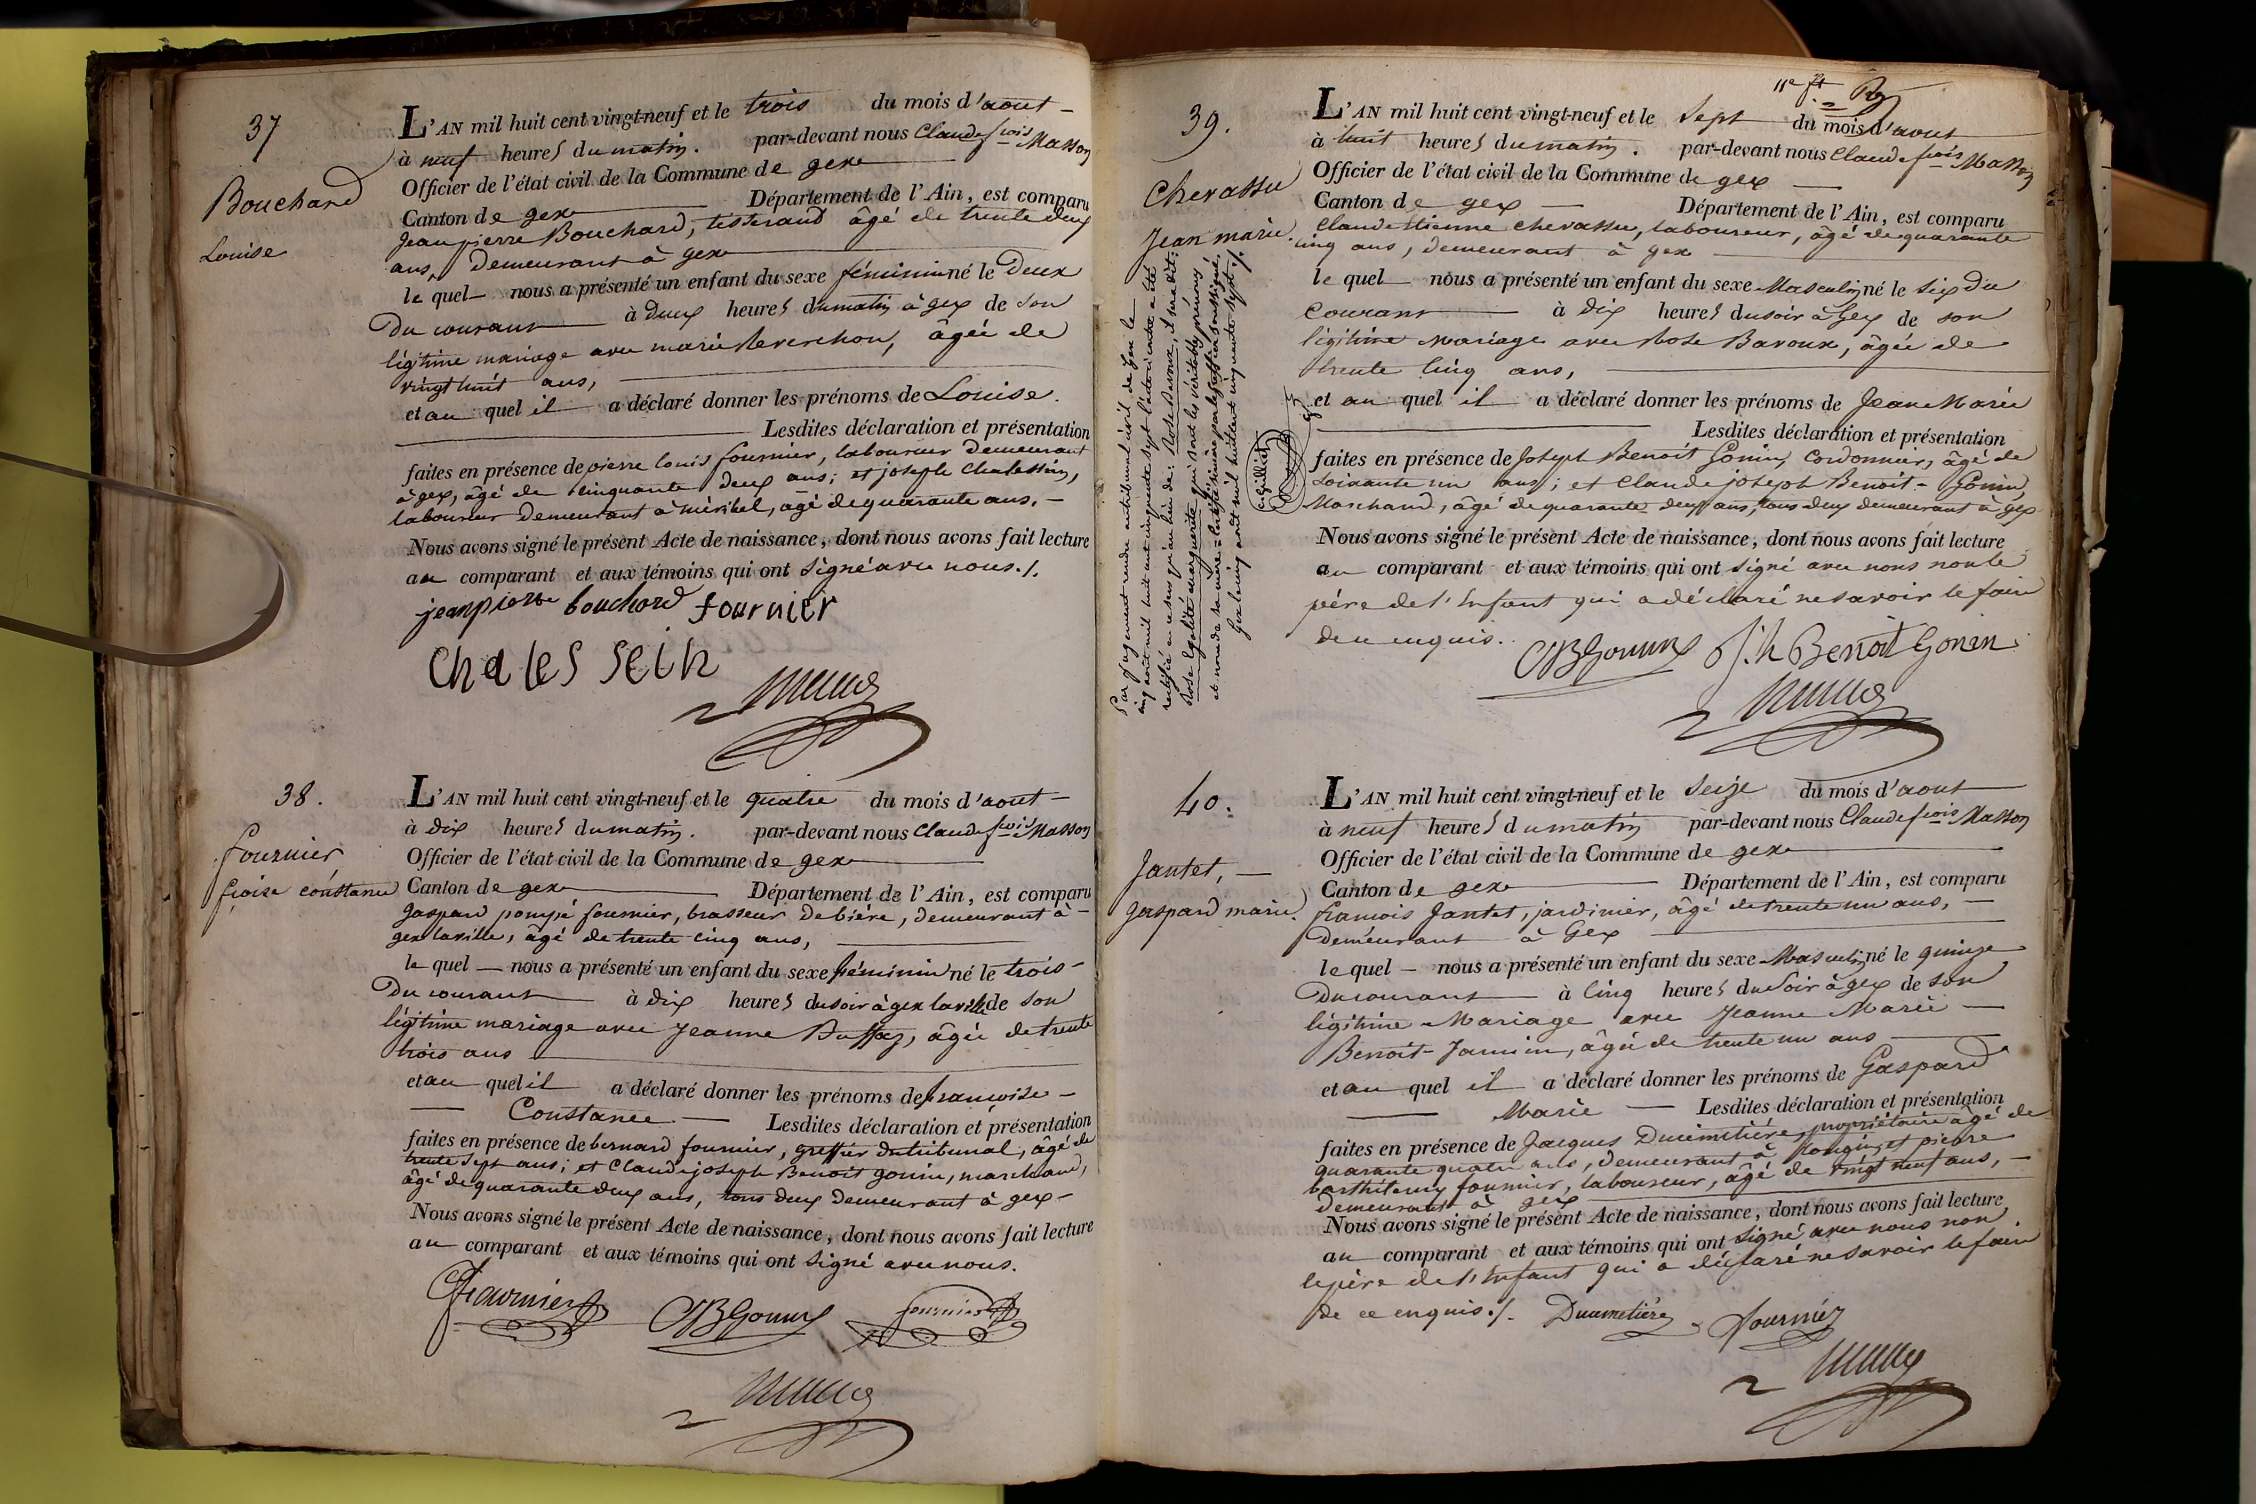 37
Bouchard
Louise
L'AN mil huit cent vingt-neuf et le trois du mois d'aout
à neuf heures du matin. par-devant nous Claude fcois Masson
Officier de l'état civil de la Commune de gex
Canton de gex Département de l'Ain, est comparu
Jean pierre Bouchard, tisserand âgé de trente deux
ans, demeurant à gex
le quel nous a présenté un enfant du sexe féminin né le Deux
Du courant à Deux heures du matin à gex de son
légitime mariage avec marie Reverchon, âgée de
vingt huit ans,
et au quel il a déclaré donner les prénoms de Louise.
Lesdites déclaration et présentation
faites en présence de pierre louis fournier, laboureur demeurant
à gex, âgé de cinquante deux ans; et joseph Chalessein,
laboureur demeurant à méribel, âgé de quarante ans.
Nous avons signé le présent Acte de naissance, dont nous avons fait lecture
au comparant et aux témoins qui ont signé avec nous./.
jeanpierre bouchard fournier
Chales sein
38.
fournier
fçoise constance
L'AN mil huit cent vingt-neuf et le quatre du mois d'aout
à dix heures du matin. par-devant nous Claude fcois Masson
Officier de l'état civil de la Commune de gex
Canton de gex Département de l'Ain, est comparu
gaspard pompé fournier, brasseur de bière, demeurant à
gex la ville, âgé de trente cinq ans,
le quel nous a présenté un enfant du sexe féminin né le trois
Du courant à dix heures du soir à gex la ville de son
légitime mariage avec Jeanne Duffaz, âgée de trente
trois ans
et au quel il a déclaré donner les prénoms de françoise
Constance Lesdites déclaration et présentation
faites en présence de bernard fournier, greffier du tribunal, âgé de
trente sept ans; et Claude joseph Benoit gonin, marchand,
âgé de quarante deux ans, tous deux demeurant à gex
Nous avons signé le présent Acte de naissance, dont nous avons fait lecture
au comparant et aux témoins qui ont signé avec nous.
fournier CJBGonin fournier
39.
Chevassu
Jean marie.
Par jugement rendu au tribunal civil de Gex le
cinq aout mil huit cent cinquante sept l'acte ci contre a été
rectifié en ce sens qu'au lieu de: Rose Baroux, il sera dit:
Rose Egalité marguerite qui sont les véritables prénoms
et nom de sa mère
Gex le vingt aout mil huit cent cinquante sept./.
11e ft
L'AN mil huit cent vingt-neuf et le Sept du mois d'aout
à huit heures du matin. par-devant nous Claude fcois Masson
Officier de l'état civil de la Commune de gex
Canton de gex Département de l'Ain, est comparu
Claude Etienne Chevassu, laboureur, âgé de quarante
cinq ans, demeurant à gex
le quel nous a présenté un enfant du sexe Masculin né le six du
Courant à dix heures du soir à Gex de son
légitime mariage avec Rose Baroux, âgée de
trente cinq ans,
et au quel il a déclaré donner les prénoms de Jean Marie
Lesdites déclaration et présentation
faites en présence de Joseph Benoit Gonin, Cordonnier, âgé de
soixante un ans; et Claude joseph Benoit-Gonin,
Marchand, âgé de quarante deux ans, tous deux demeurant à gex
Nous avons signé le présent Acte de naissance, dont nous avons fait lecture
au comparant et aux témoins qui ont signé avec nous non le
père de l'Enfant qui a déclaré ne savoir le faire
de ce enquis.
CJBGonin J.h Benoit Gonin
40.
Jantet,
gaspard marie.
L'AN mil huit cent vingt-neuf et le Seize du mois d'aout
à neuf heures du matin par-devant nous Claude fcois Masson
Officier de l'état civil de la Commune de gex
Canton de gex Département de l'Ain, est comparu
francois Jantet, jardinier, âgé de trente un ans,
demeurant à Gex
le quel nous a présenté un enfant du sexe Masculin né le quinze
Du courant à Cinq heures du Soir à gex de son
légitime Mariage avec Jeanne Marie
Benoit-Jannin, âgée de trente un ans
et au quel il a déclaré donner les prénoms de Gaspard
Marie Lesdites déclaration et présentation
faites en présence de Jacques Ducimetière, propriétaire âgé de
quarante quatre ans, demeurant à et pierre
barthélemy fournier, laboureur, âgé de vingt neuf ans,
demeurant à gex
Nous avons signé le présent Acte de naissance, dont nous avons fait lecture
au comparant et aux témoins qui ont signé avec nous non
le père de l'Enfant qui a déclaré ne savoir le faire
de ce enquis./. Ducimetière fournier